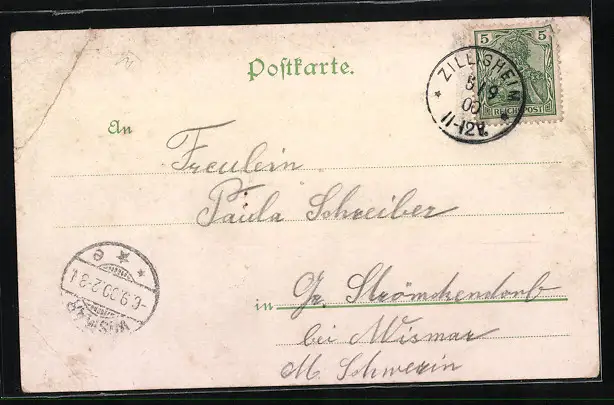 Postkarte.
5 5
REICHSPOST
ZILLISHEIM
5/9
00
11-12V.
An
Freulein
Paula Schreiber
in Gr. Strömckendorf
bei Wismar
M. Schwerin
WISMAR
-6.9.00.2-3
e